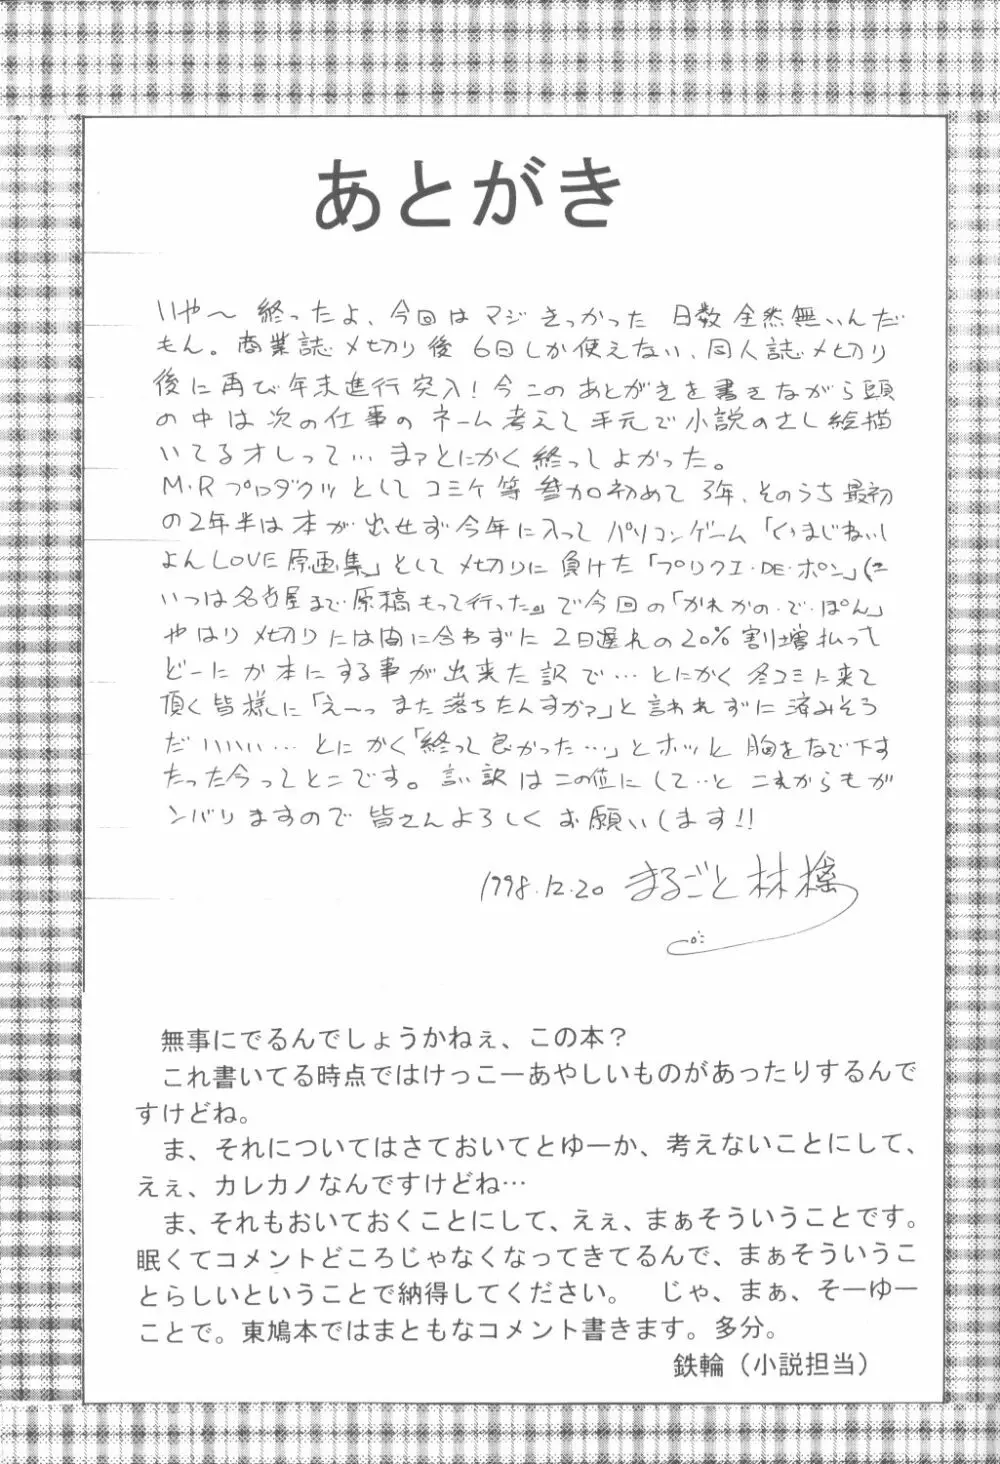 あとがき
いや〜 終ったよ、今回は マジ きっかった 日数 全然無いんだ
もん。商業誌〆切り後 6日しか使えない、同人誌〆切り
後に再び年末進行突入!今このあとがきを書きながら頭
の中は次の仕事のネーム考えて手元で小説のさし絵描
いてるオレって… まァとにかく終ってよかった。
M・Rプロダクツとしてコミケ等参加初めて3年、そのうち最初
の2年半は本が出せず今年に入ってパソコンゲーム「いまじねいし
よんLOVE原画集」として〆切りに負けた「プリクエ・DE・ポン」(こ
いつは名古屋まで原稿もって行った。)で今回の「かれかの・で・ぽん」
やはり〆切りには間に合わずに2日遅れの20%割増払って
どーにか本にする事が出来た訳で…とにかく冬コミに来て
頂く皆様に「え〜っ また落ちたんすか?」と言われずに済みそう
だ いいい… とにかく「終って良かった…」とホッと胸をなで下す
たった今ってとこです。言い訳はこの位にして…と これからもガ
ンバリますので皆さんよろしくお願いします!!
1998.12.20 まるごと林檎
無事にでるんでしょうかねぇ、この本?
これ書いてる時点ではけっこーあやしいものがあったりするんで
すけどね。
ま、それについてはさておいてとゆーか、考えないことにして、
えぇ、カレカノなんですけどね…
ま、それもおいておくことにして、えぇ、まぁそういうことです。
眠くてコメントどころじゃなくなってきてるんで、まぁそういうこ
とらしいということで納得してください。 じゃ、まぁ、そーゆー
ことで。東鳩本ではまともなコメント書きます。多分。
鉄輪(小説担当)